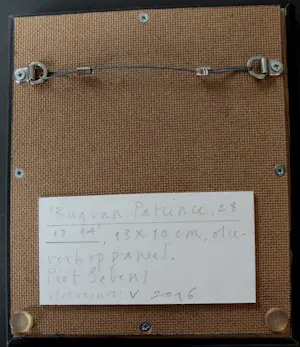 "Rug van Patience, 28
13 x 10 cm, olie-
verf op paneel.
Piet Sebens
V 2016